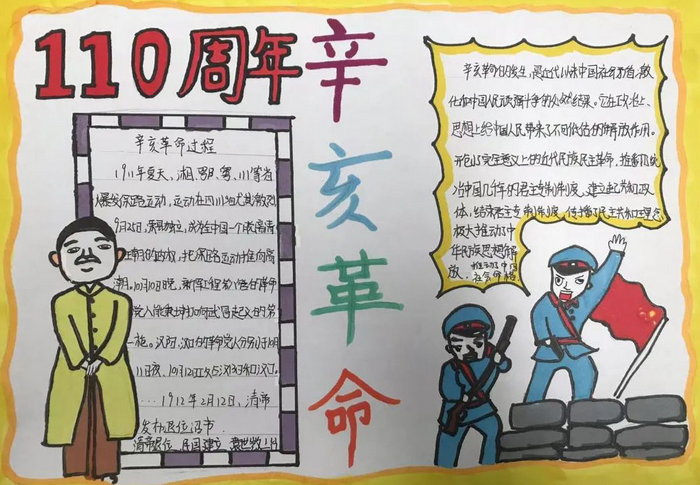 110周年
辛亥革命
辛亥革命过程
1911年夏天、湘、鄂、粤、川等省
爆发保路运动,运动在四川尤其激烈
9月25日,荣县独立,成为全中国一个脱离清
王朝的政权,把保路运动推向高
潮。10月10日晚,新军工程第八营的革命
党人
打响了武昌起义的第
一枪。汉阳、汉口的革命党人分别于10月
11日夜、10月12日
汉阳和汉口。
1912年2月12日,清帝
发布退位诏书
清帝退位 民国建立
辛亥革命的发生,是近代以来中国社会矛盾激
化和中国人民顽强斗争的必然结果。它在政治上、
思想上给中国人民带来了不可低估的解放作用。
开创了完全意义上的近代民族民主革命,推翻了统
治中国几千年的君主专制制度,建立起共和政
体,结束君主专制制度,传播了民主共和理念
极大推动了中
华民族思想解
放,
推动了中国
社会变革